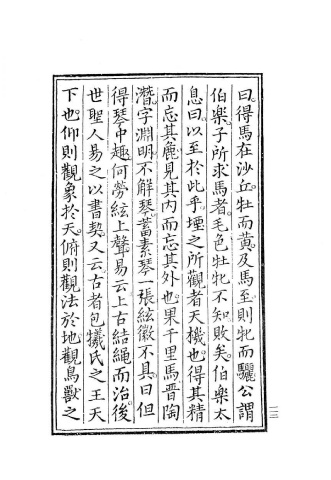 曰得馬在沙丘牡而黄及馬至則牝而驪公謂
伯樂子所求馬者毛色牡牝不知敗矣伯樂太
息曰以至於此乎堙之所觀者天機也得其精
而忘其麁見其内而忘其外也果千里馬晋陶
潛字淵明不解琴蓄素琴一張絃徽不具曰但
得琴中趣何勞絃上聲易云上古結䋲而治後
世聖人易之以書契又云古者包犧氏之王天
下也仰則觀象於天俯則觀法於地觀鳥獸之